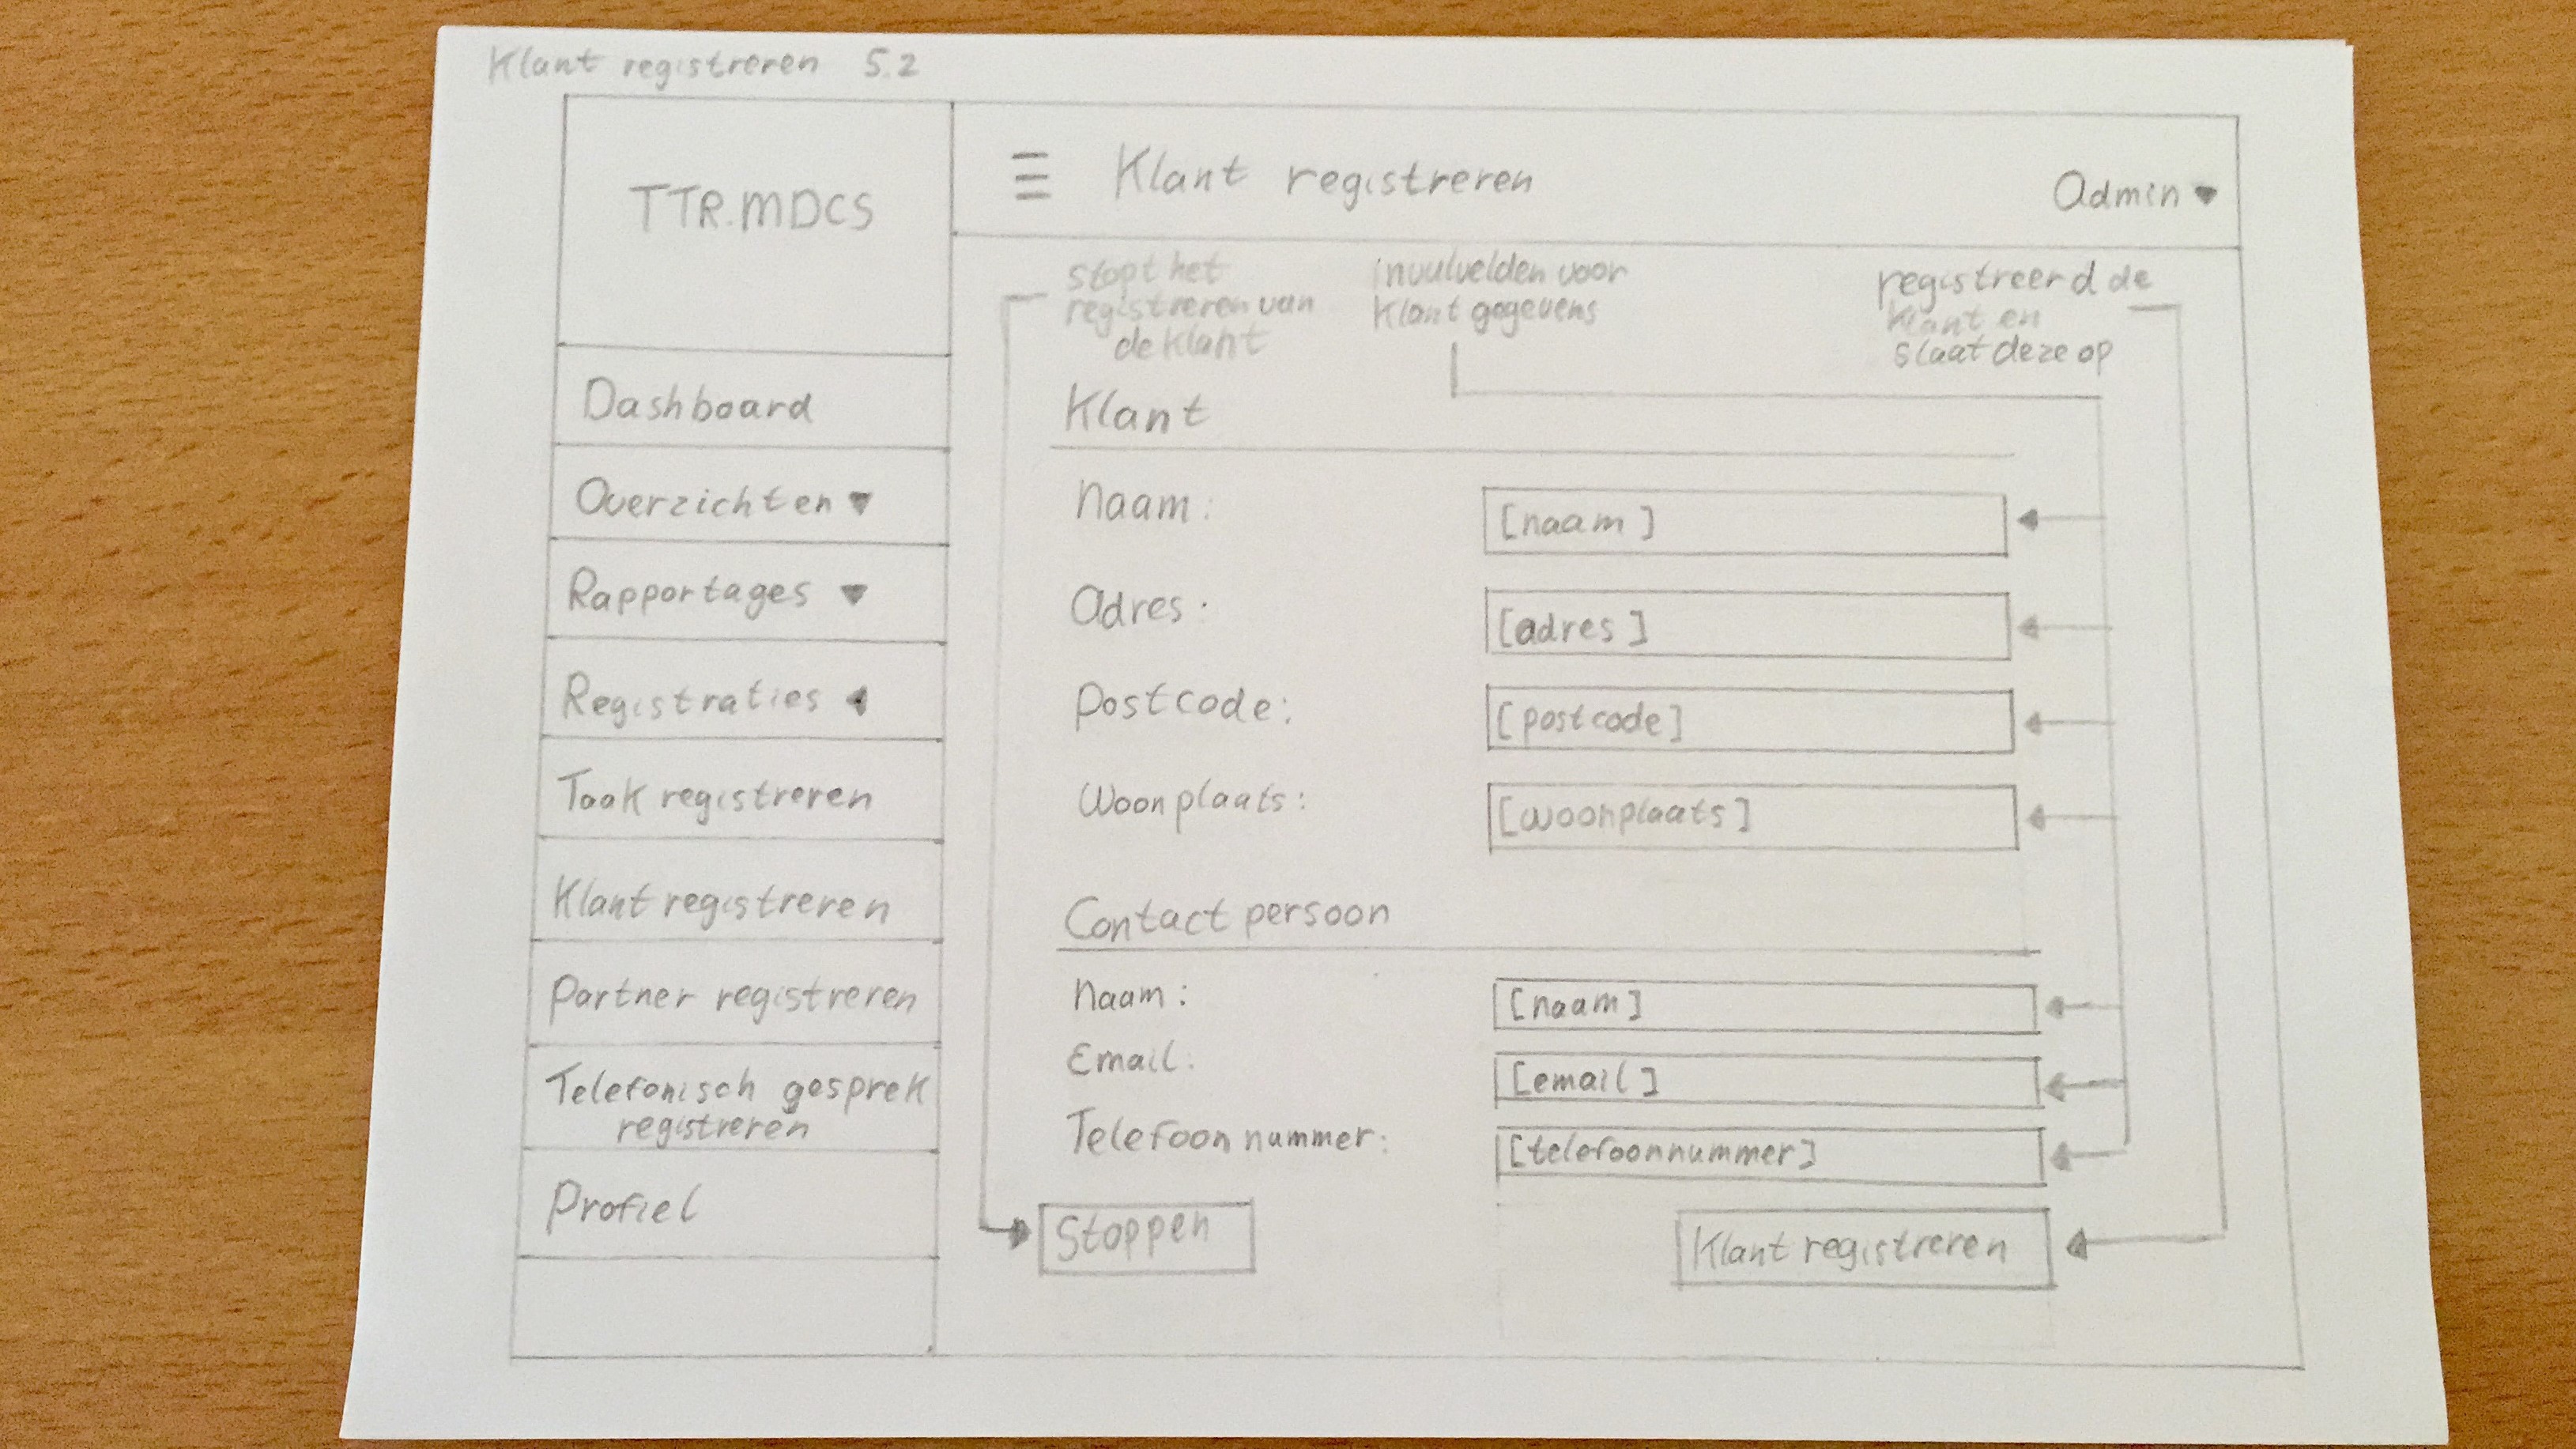 Klant registreren 5.2
TTR.MDCS
Klant registreren
Admin
Dashboard
Overzichten
Rapportages
Registraties
Taak registreren
Klant registreren
Partner registreren
Telefonisch gesprek
registreren
Profiel
Stopt het
registreren van
de klant
invulvelden voor
Klant gegevens
registreerd de
klant en
slaat deze op
Klant
Naam:
[naam]
Adres:
[adres]
Postcode:
[postcode]
Woonplaats:
[woonplaats]
Contact persoon
Naam:
[naam]
Email:
[email]
Telefoon nummer:
[telefoonnummer]
Stoppen
Klant registreren